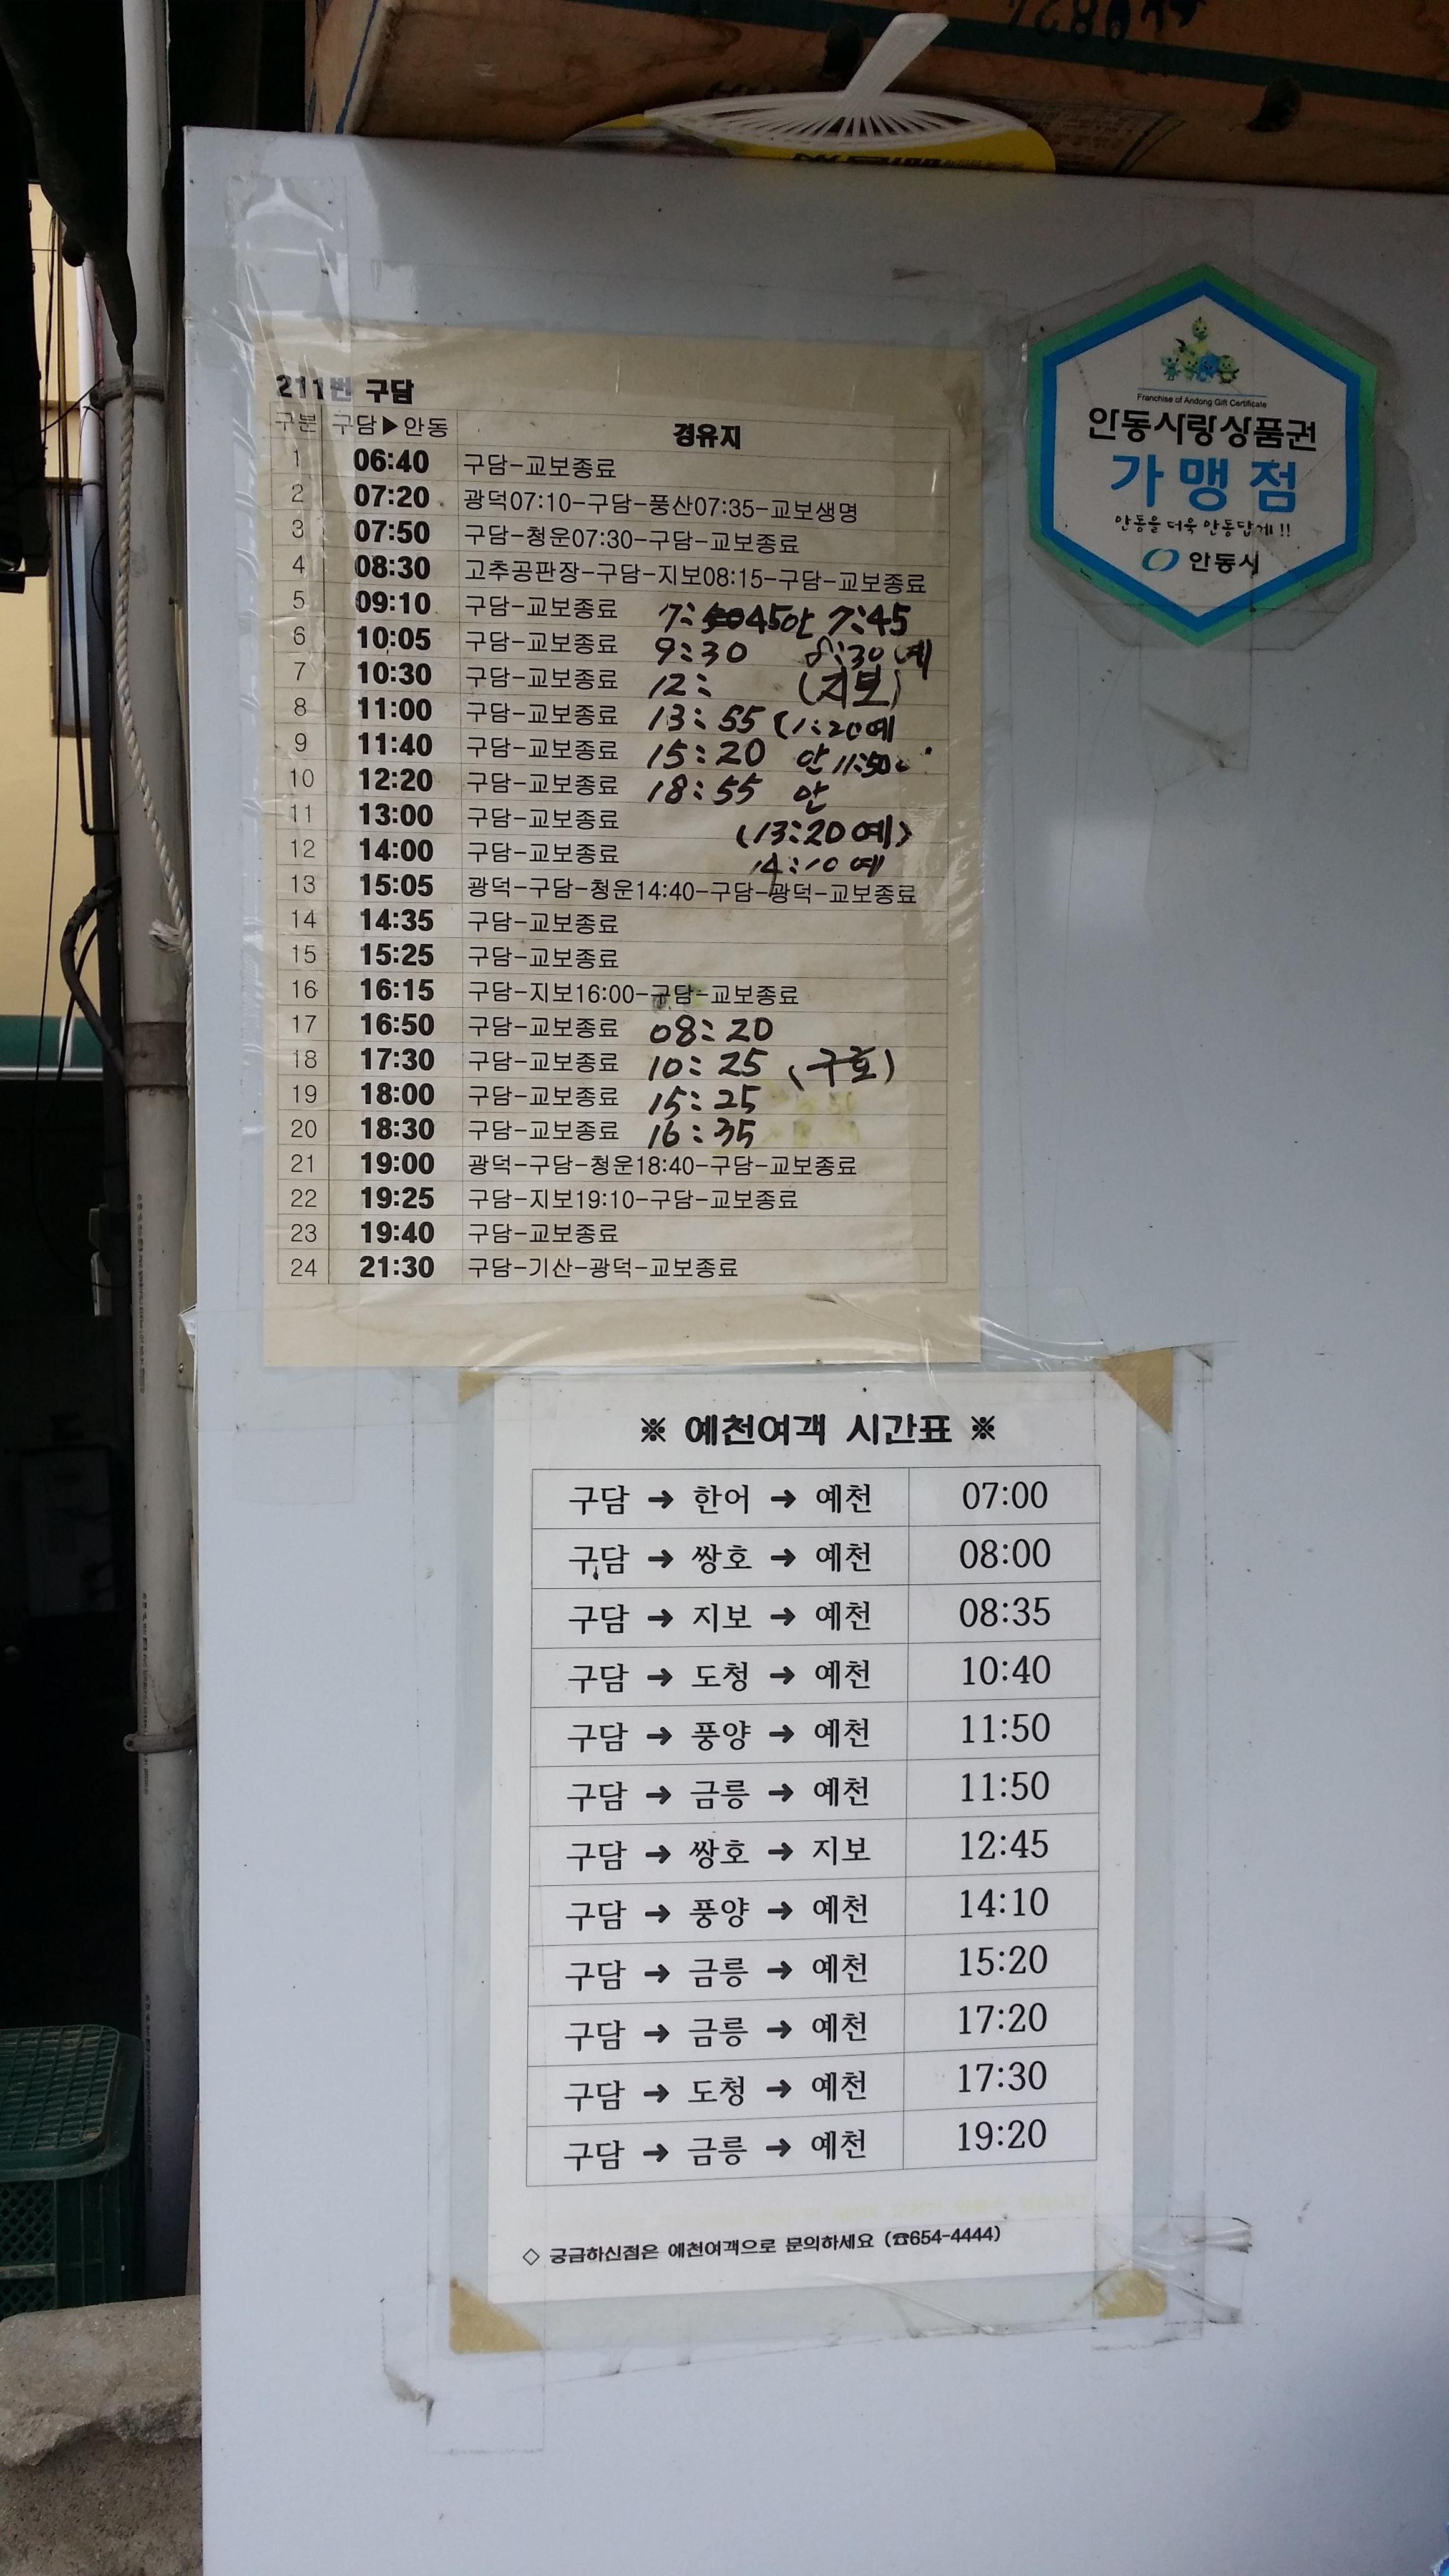 211번 구담
구분 구담▶안동 경유지
1 06:40 구담-교보종료
2 07:20 광덕07:10-구담-풍산07:35-교보생명
3 07:50 구담-청운07:30-구담-교보종료
4 08:30 고추공판장-구담-지보08:15-구담-교보종료
5 09:10 구담-교보종료 7:45안 7:45
6 10:05 구담-교보종료 9:30 8:30 예
7 10:30 구담-교보종료 12: (지보)
8 11:00 구담-교보종료 13:55 (1:20예
9 11:40 구담-교보종료 15:20 안 11:50
10 12:20 구담-교보종료 18:55 안
11 13:00 구담-교보종료 (13:20 예)
12 14:00 구담-교보종료 14:10 예
13 15:05 광덕-구담-청운14:40-구담-광덕-교보종료
14 14:35 구담-교보종료
15 15:25 구담-교보종료
16 16:15 구담-지보16:00-구담-교보종료
17 16:50 구담-교보종료 08:20
18 17:30 구담-교보종료 10:25 (구호)
19 18:00 구담-교보종료 15:25
20 18:30 구담-교보종료 16:35
21 19:00 광덕-구담-청운18:40-구담-교보종료
22 19:25 구담-지보19:10-구담-교보종료
23 19:40 구담-교보종료
24 21:30 구담-기산-광덕-교보종료
Franchise of Andong Gift Certificate
안동사랑상품권
가맹점
안동을 더욱 안동답게!!
안동시
※ 예천여객 시간표 ※
구담 → 한어 → 예천 07:00
구담 → 쌍호 → 예천 08:00
구담 → 지보 → 예천 08:35
구담 → 도청 → 예천 10:40
구담 → 풍양 → 예천 11:50
구담 → 금릉 → 예천 11:50
구담 → 쌍호 → 지보 12:45
구담 → 풍양 → 예천 14:10
구담 → 금릉 → 예천 15:20
구담 → 금릉 → 예천 17:20
구담 → 도청 → 예천 17:30
구담 → 금릉 → 예천 19:20
◇ 궁금하신점은 예천여객으로 문의하세요 (☎654-4444)